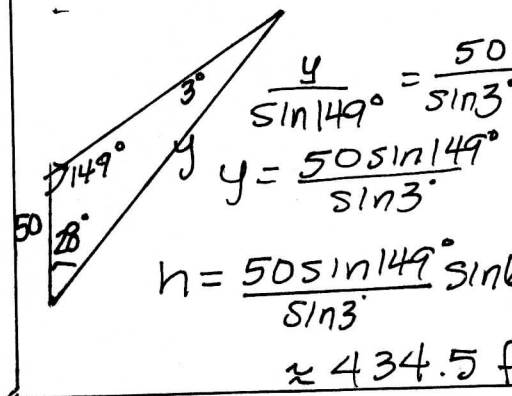 3°
149°
y
50
28°
y/sin149° = 50/sin3°
y = 50sin149°/sin3°
h = 50sin149°/sin3° sin
≈ 434.5 f